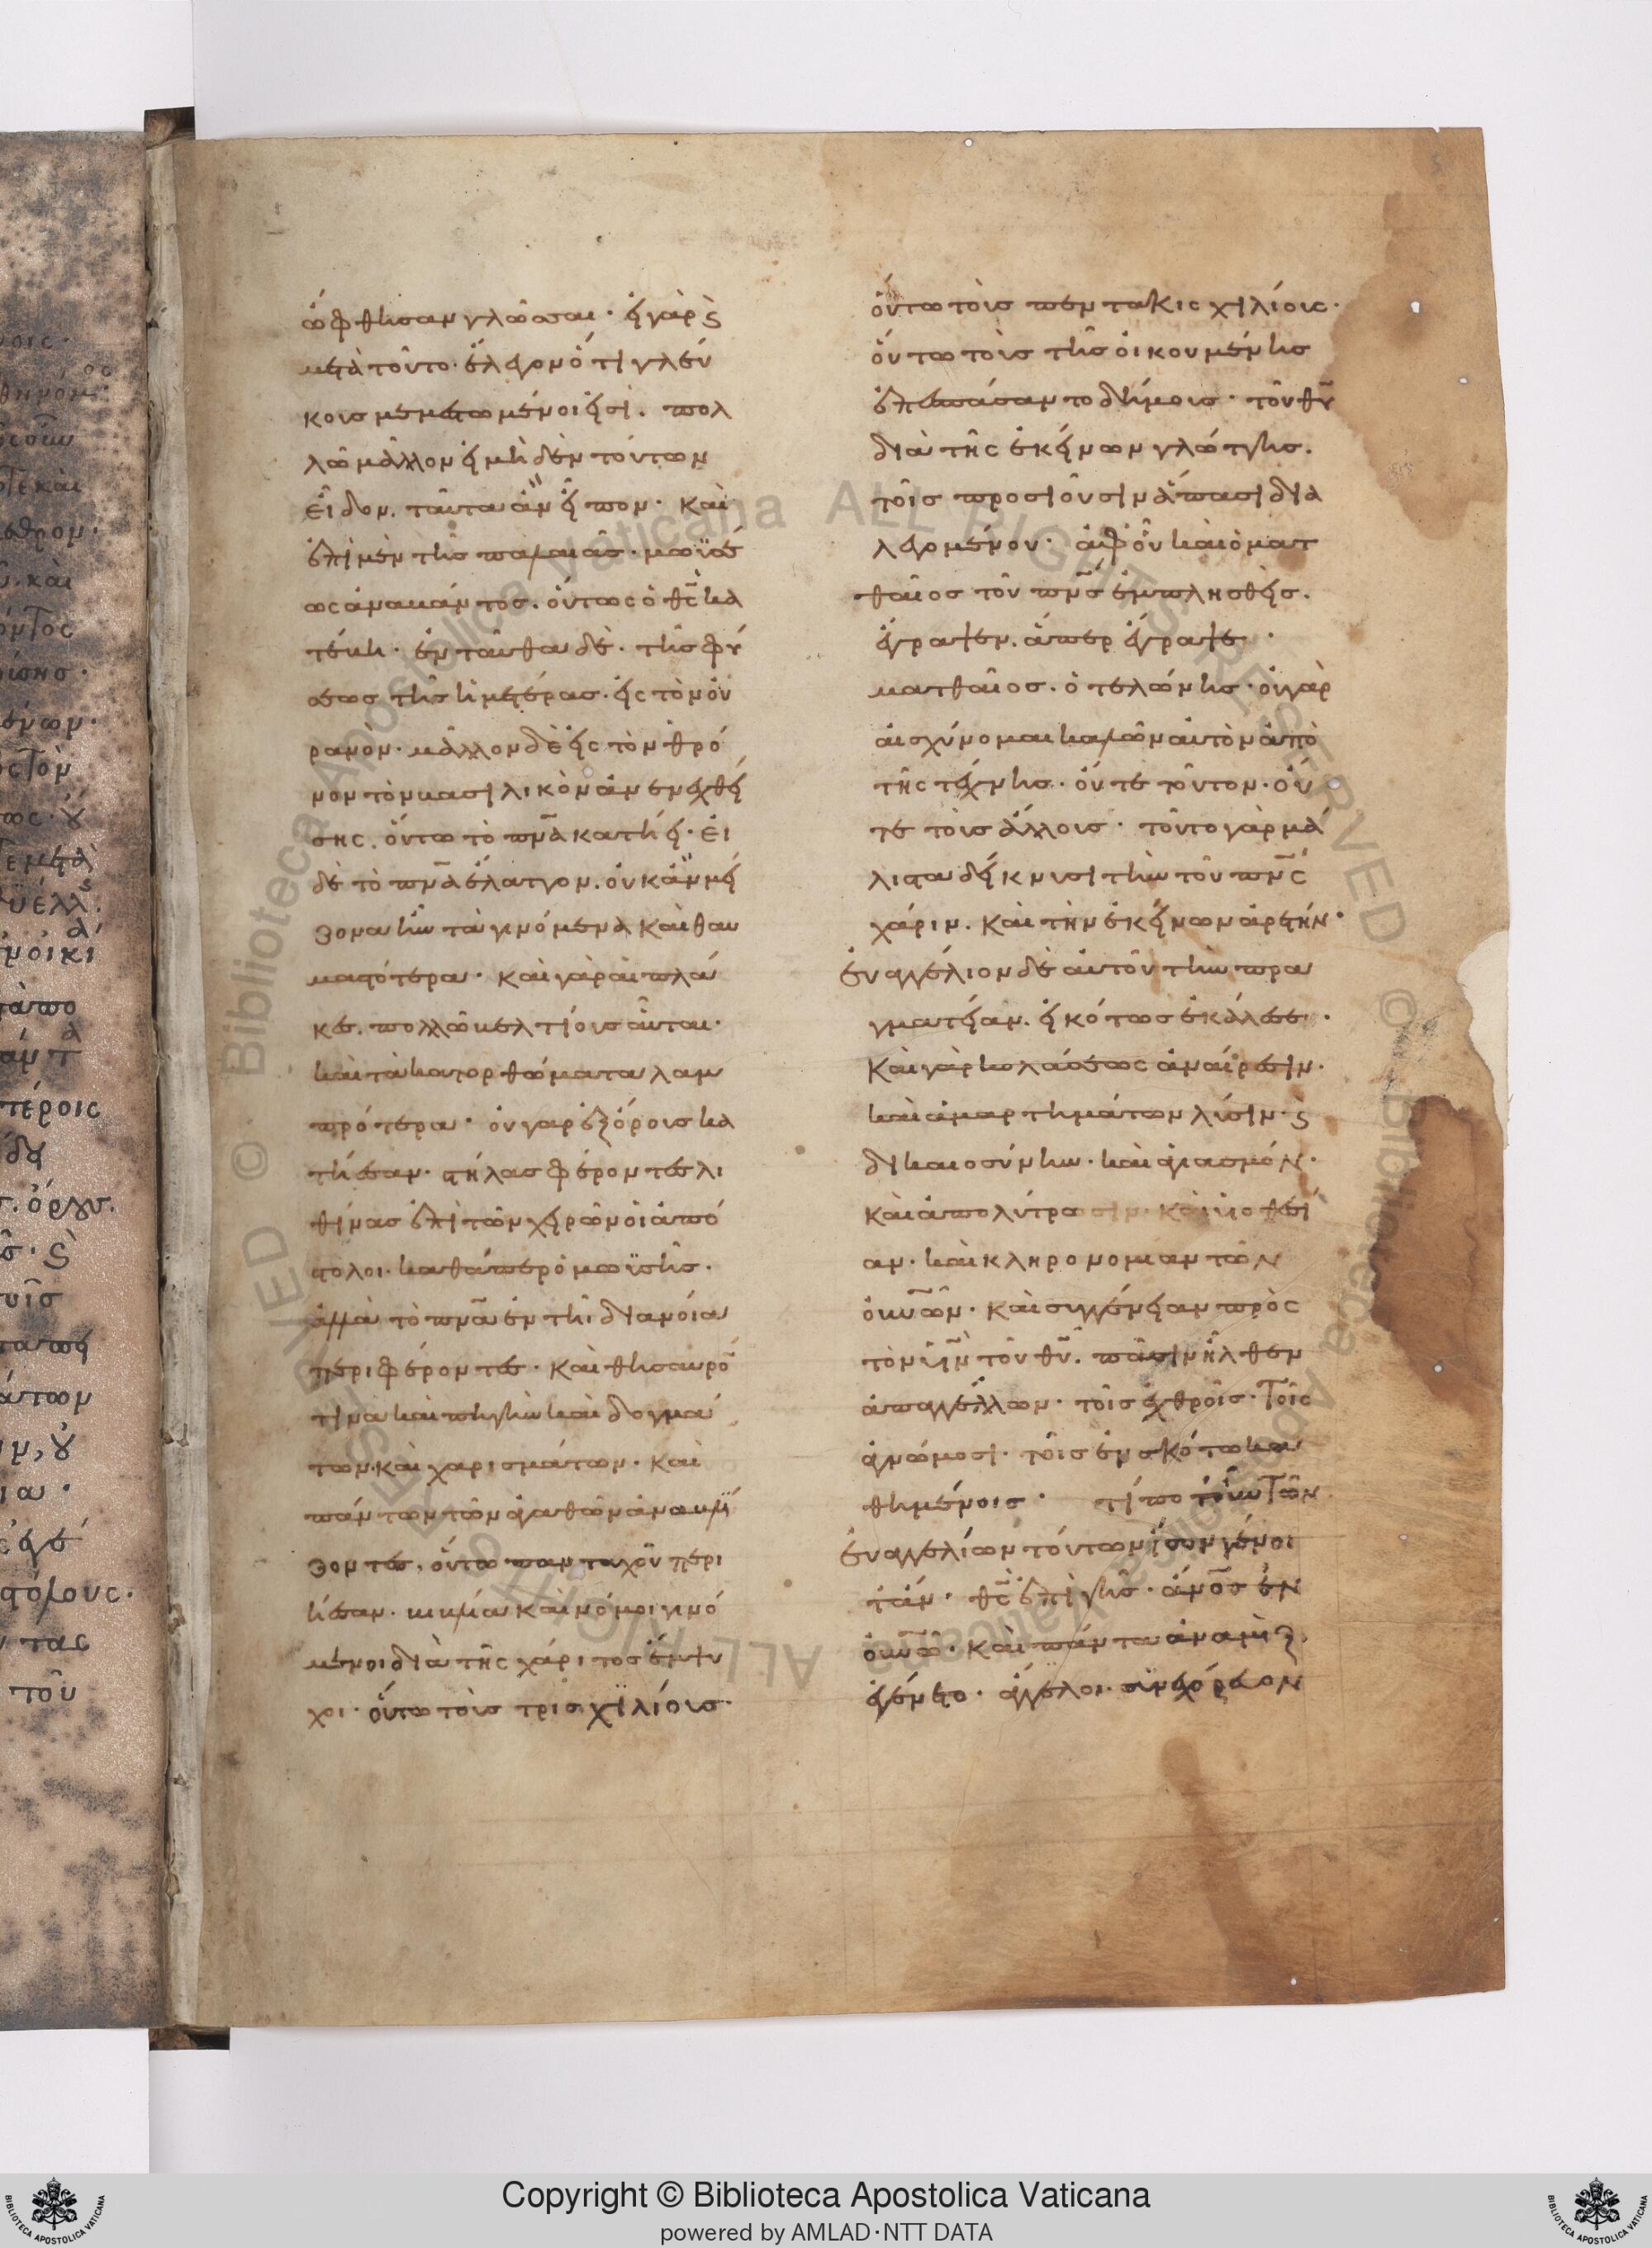 ὤφθησαν γλῶσσαι· εἰ γὰρ καὶ
μετὰ τοῦτο· ἔλεγον ὅτι γλεύ
κους μεμεστωμένοι εἰσί. πολ
λῶ μᾶλλον εἰ μὴδὲν τούτων
εἶδον. ταῦτα ἂν εἶπον· καὶ
ἐπὶ μὲν τῆς παλαιᾶς· μωϋσέ
ως ἀναβάντος. οὕτως ὁ θς κα
τέβη· ἐνταῦθα δὲ· τῆς φύ
σεως τῆς ἡμετέρας· εἰς τὸν οὐ
ρανὸν· μᾶλλον δὲ εἰς τὸν θρό
νον τὸν βασιλικὸν ἀνενεχθεί
σης. οὕτω τὸ πνα κατήει· εἰ
δὲ τὸ πνα ἔλαττον. οὐκ ἂν μεί
ζονα ἦν τὰ γινόμενα καὶ θαυ
μαστότερα· καὶ γὰρ αἱ πλά
κες. πολλῶ βελτίους αὗται·
καὶ τὰ κατορθώματα λαμ
πρότερα· οὐ γαρ ἐξ ὄρους κα
τήεσαν· στήλας φέροντες λι
θίνας ἐπὶ τῶν χειρῶν οἱ ἀπό
στολοι· καθάπερ ὁ μωϋσῆς·
ἀλλὰ τὸ πνα ἐν τῆ διανοία
περιφέροντες· καὶ θησαυρό
τινα καὶ πηγὴν καὶ δογμά
των· καὶ χαρισμάτων· καὶ
πάντων τῶν ἀγαθῶν ἀναβλύ
ζοντες, οὕτω πανταχοῦ περι
ήεσαν· βιβλία καὶ νόμοι γινό
μενοι διὰ τῆς χάριτος ἔμψυ
χοι· οὕτω τοὺς τρισχϊλίους·
οὕτω τοὺς πεντακις χιλίους·
οὕτω τοὺς τῆς οἰκουμένης
ἐπεσπάσαντο δήμους· τοῦ θυ
διὰ τῆς ἐκείνων γλώττης.
τοῖς προσιοῦσιν ἅπασι δια
λεγομένου· ἀφ' οὗ καὶ ὁ ματ
θαῖος τοῦ πνς ἐμπλησθεὶς.
ἔγραψεν. ἅπερ ἔγραψε·
ματθαῖος. ὁ τελώνης· οὐ γὰρ
αἰσχύνομαι καλῶν αὐτὸν ἀπὸ
τῆς τέχνης· οὔτε τοῦτον· οὔ
τε τοὺς ἄλλους· τοῦτο γὰρ μά
λιστα δείκνυσι τὴν τοῦ πνς
χάριν. καὶ τὴν ἐκείνων ἀρετήν·
εὐαγγέλιον δὲ αὐτοῦ τὴν πρα
γματείαν. εἰκότως ἐκάλεσε·
καὶ γὰρ κολάσεως ἀναίρεσιν·
καὶ ἁμαρτημάτων λύσιν· καὶ
δικαιοσύνην· καὶ ἁγιασμόν·
καὶ ἀπολύτρωσιν· καὶ υἱοθεσί
αν· καὶ κληρονομιαν τῶν
οὐνῶν· καὶ συγγένειαν πρὸς
τὸν υἱὸν τοῦ θυ. πᾶσιν ἦλθεν
ἀπαγγέλλων· τοῖς ἐχθροῖς· τοῖς
ἀγνώμοσι· τοῖς ἐν σκότω κα
θημένοις· τί ποτ οὖν τῶν
εὐαγγελίων τούτων ἴσον γένοι
τ ἄν· θς ἐπὶ γῆς· ἀνος ἐν
οὐνῶ· καὶ πάντα ἀναμὶξ
ἐγένετο· ἄγγελοι συνεχόρευον